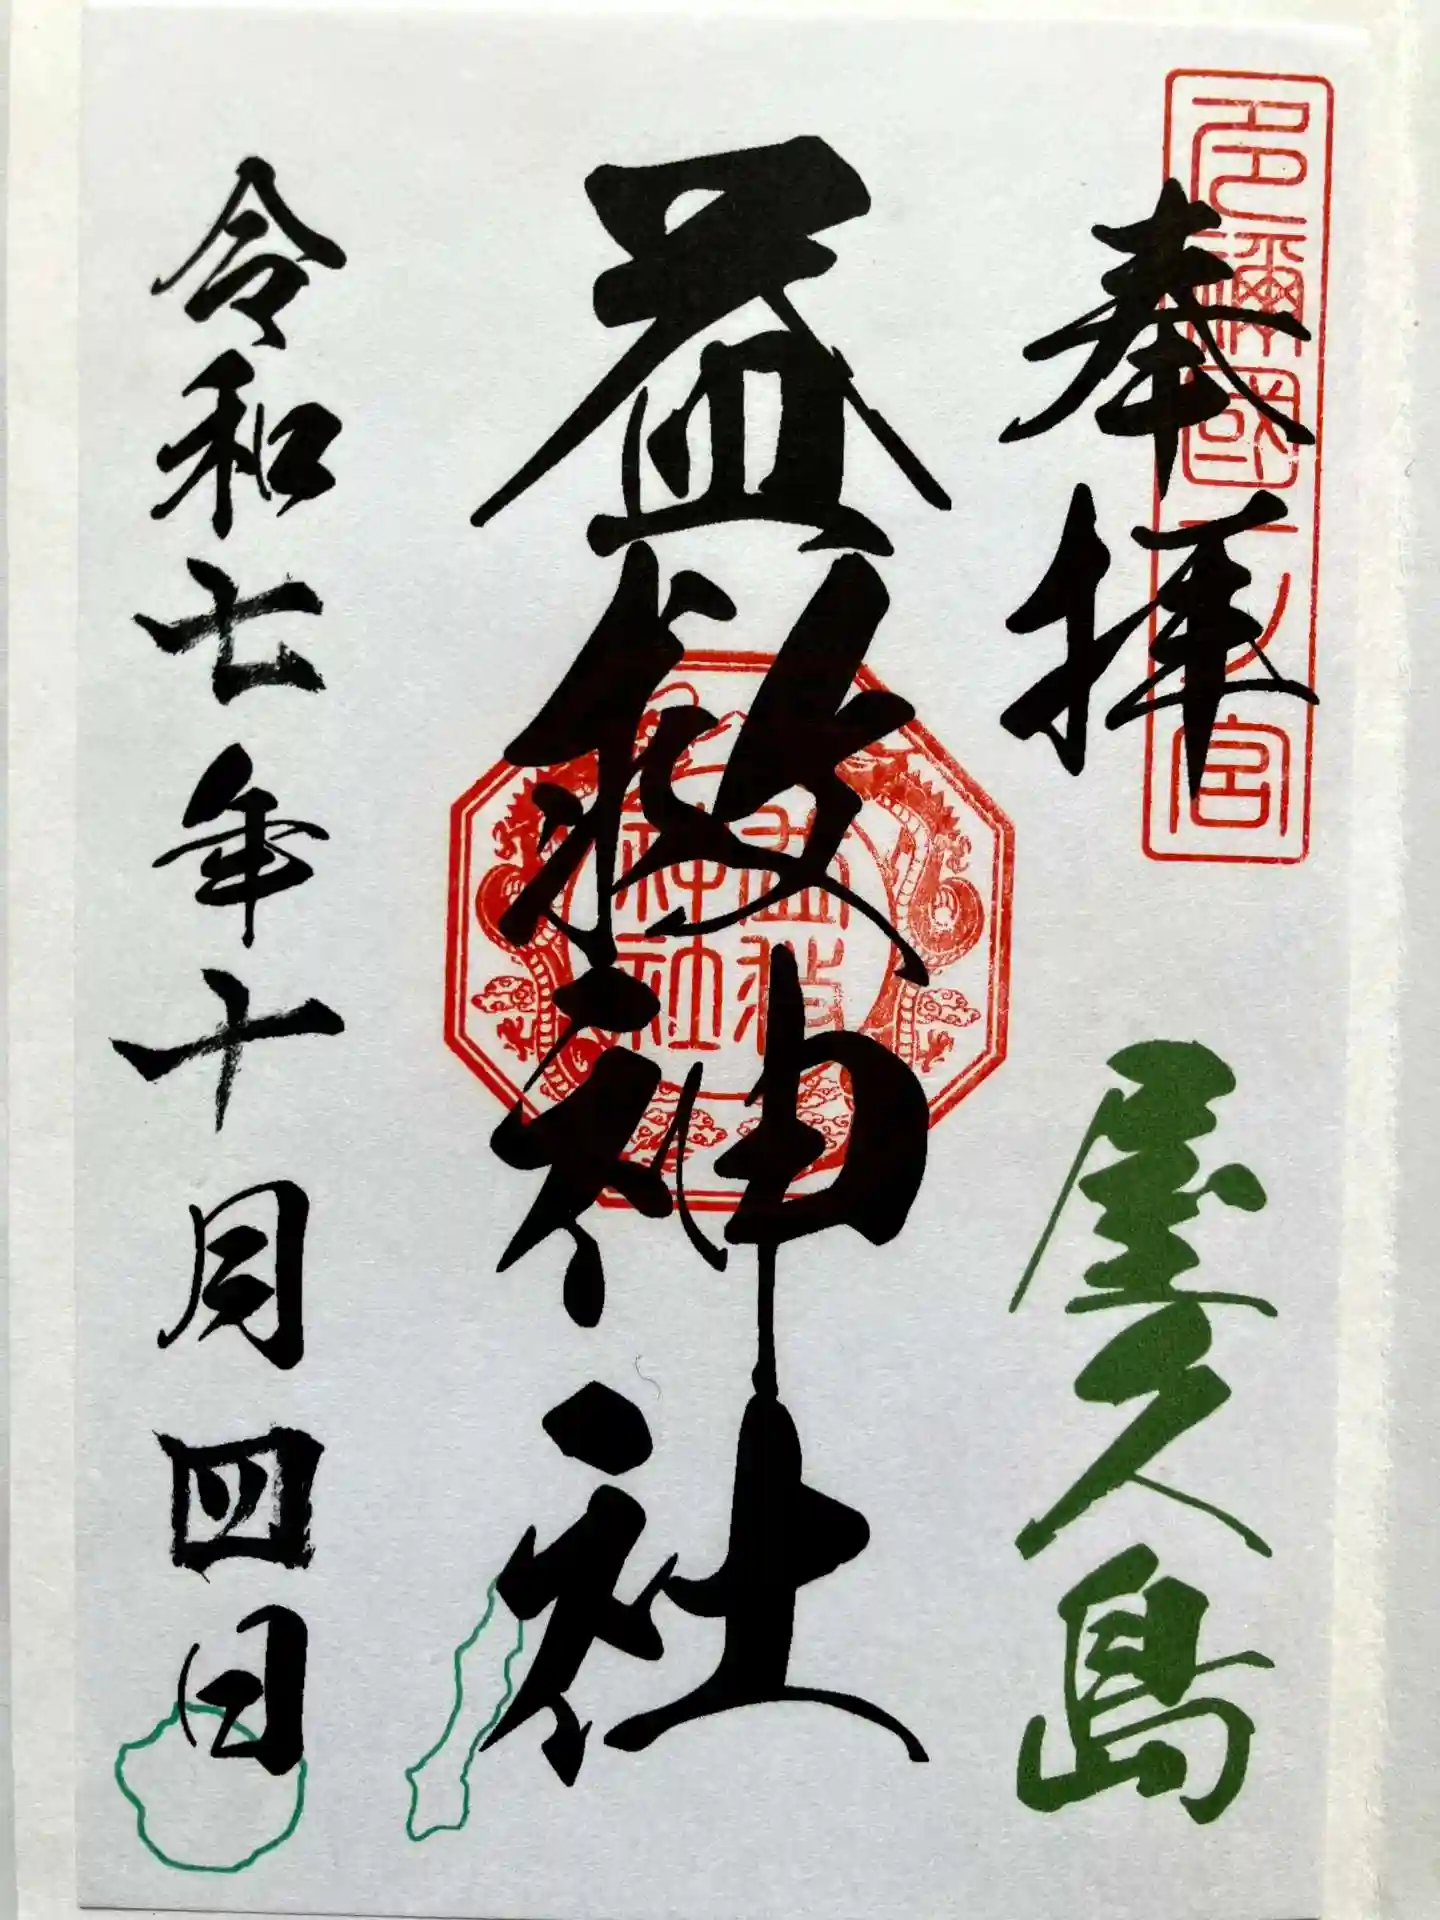 多禰國一ノ宮
奉拝
屋久島
益救神社
益救
神社
令和七年十月四日